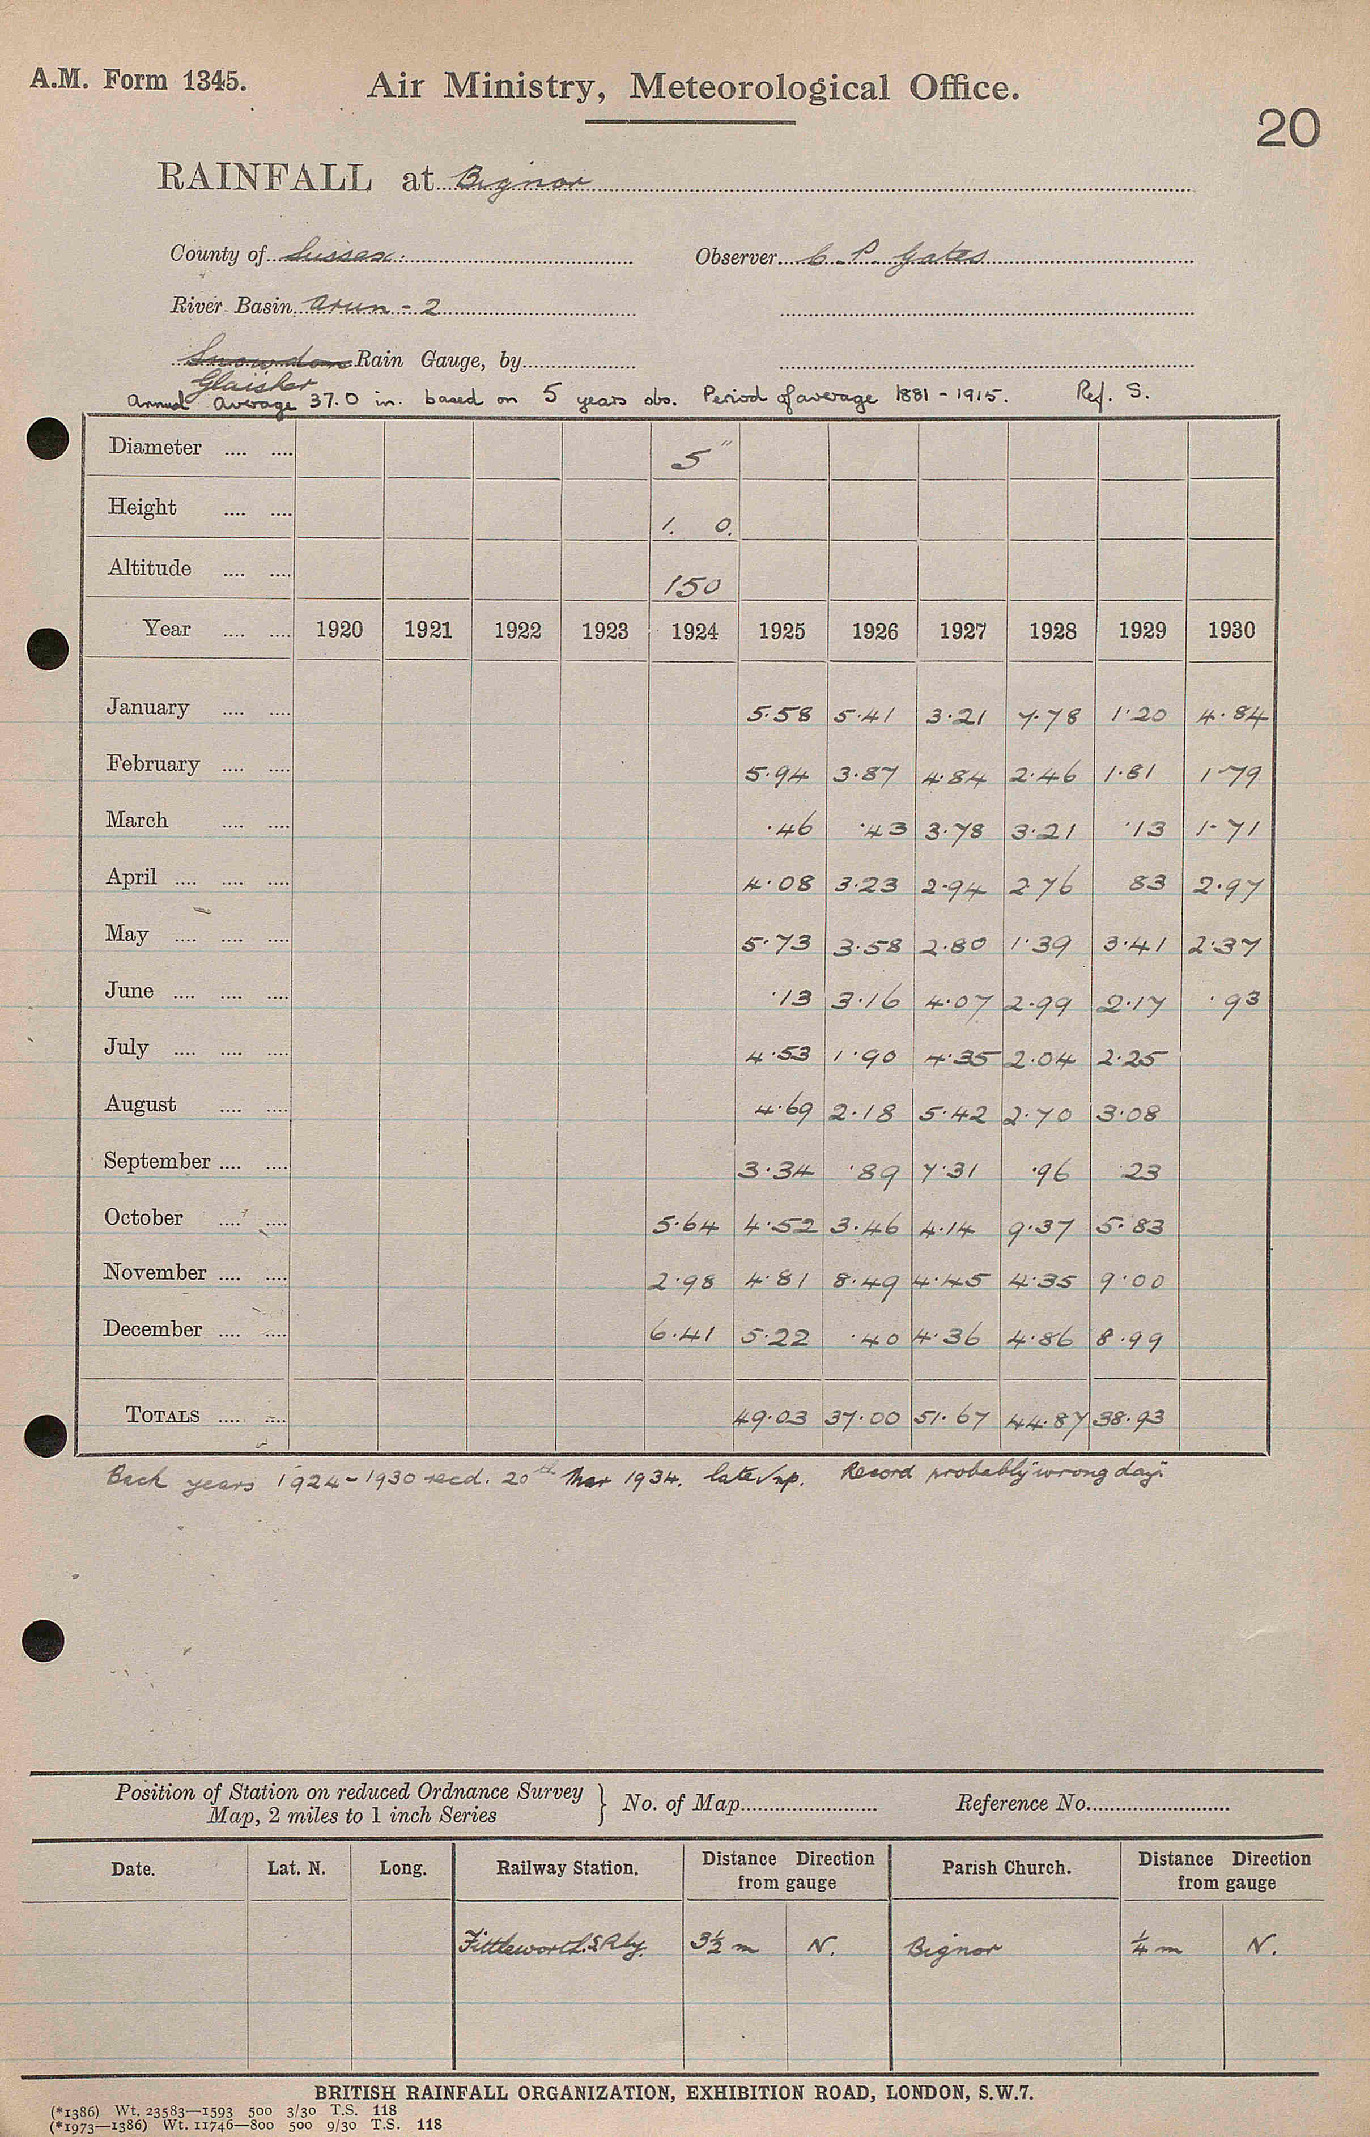 A.M. Form 1345.
Air Ministry, Meteorological Office.
20
RAINFALL at Bignor
County of Sussex. Observer C. P. Gates
River Basin Arun - 2
Snowdon Rain Gauge, by
Glaisher
Annual Average 37.0 in. based on 5 years obs. Period of average 1881 - 1915. Ref. S.
Diameter 5"
Height 1. 0.
Altitude 150
Year 1920 1921 1922 1923 1924 1925 1926 1927 1928 1929 1930
January 5.58 5.41 3.21 7.78 1.20 4.84
February 5.94 3.87 4.84 2.46 1.81 1.79
March .46 .43 3.78 3.21 .13 1.71
April 4.08 3.23 2.94 2.76 83 2.97
May 5.73 3.58 2.80 1.39 3.41 2.37
June .13 3.16 4.07 2.99 2.17 .93
July 4.53 1.90 4.35 2.04 2.25
August 4.69 2.18 5.42 2.70 3.08
September 3.34 .89 7.31 .96 23
October 5.64 4.52 3.46 4.14 9.37 5.83
November 2.98 4.81 8.49 4.45 4.35 9.00
December 6.41 5.22 .40 4.36 4.86 8.99
TOTALS 49.03 37.00 51.67 44.87 38.93
Back years 1924-1930 recd. 20th Mar 1934. late Record probably "wrong day".
Position of Station on reduced Ordnance Survey } No. of Map Reference No.
Map, 2 miles to 1 inch Series
Date. Lat. N. Long. Railway Station. Distance Direction from gauge Parish Church. Distance Direction from gauge
Fittleworth S Rly. 3½ m N. Bignor ¼ m N.
BRITISH RAINFALL ORGANIZATION, EXHIBITION ROAD, LONDON, S.W.7.
(*1386) Wt. 23583—1593 500 3/30 T.S. 118
(*1973—1386) Wt. 11746—800 500 9/30 T.S. 118